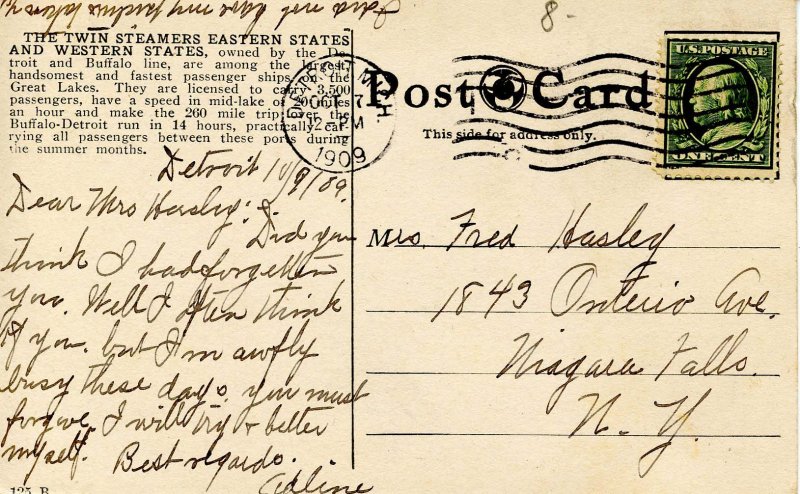 8-
THE TWIN STEAMERS EASTERN STATES
AND WESTERN STATES, owned by the De-
troit and Buffalo line, are among the largest,
handsomest and fastest passenger ships on the
Great Lakes. They are licensed to carry 3,500
passengers, have a speed in mid-lake of 20 miles
an hour and make the 260 mile trip over the
Buffalo-Detroit run in 14 hours, practically car-
rying all passengers between these ports during
the summer months.
DETROIT, MICH.
OCT 7
12 PM
1909
Post Card
This side for address only.
U.S. POSTAGE
ONE CENT
Detroit 10/9/09.
Dear Mrs Hasley:
Did you
think I had forgotten
you. Well I often think
of you. but I'm awfly
busy these days. you must
forgive. I will try & better
myself. Best regards.
Adline
have my picture taken
Mrs. Fred Hasley
1843 Onterio Ave.
Niagara Falls.
N. Y.
125 B